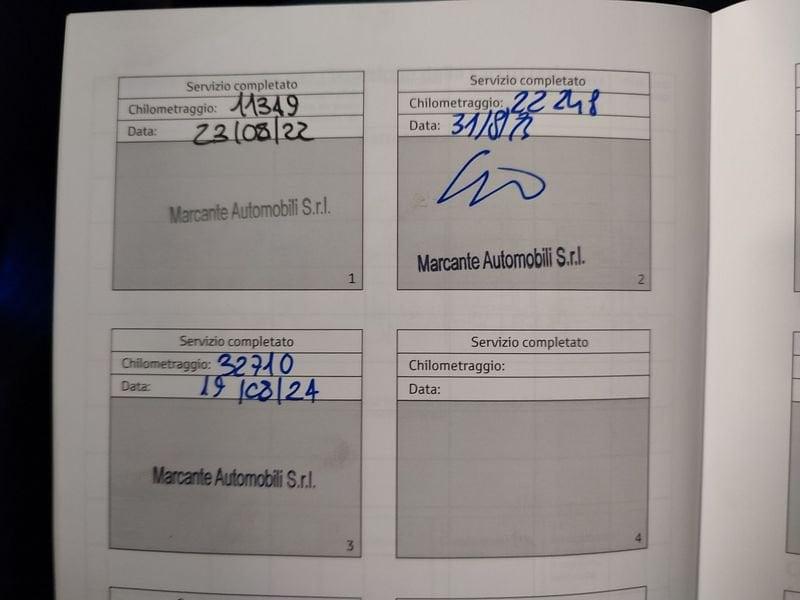 Servizio completato
Chilometraggio: 11349
Data: 23/08/22
Marcante Automobili S.r.l.
1
Servizio completato
Chilometraggio: 22 248
Data: 31/8/23
Marcante Automobili S.r.l.
2
Servizio completato
Chilometraggio: 32710
Data: 19/08/24
Marcante Automobili S.r.l.
3
Servizio completato
Chilometraggio:
Data:
4